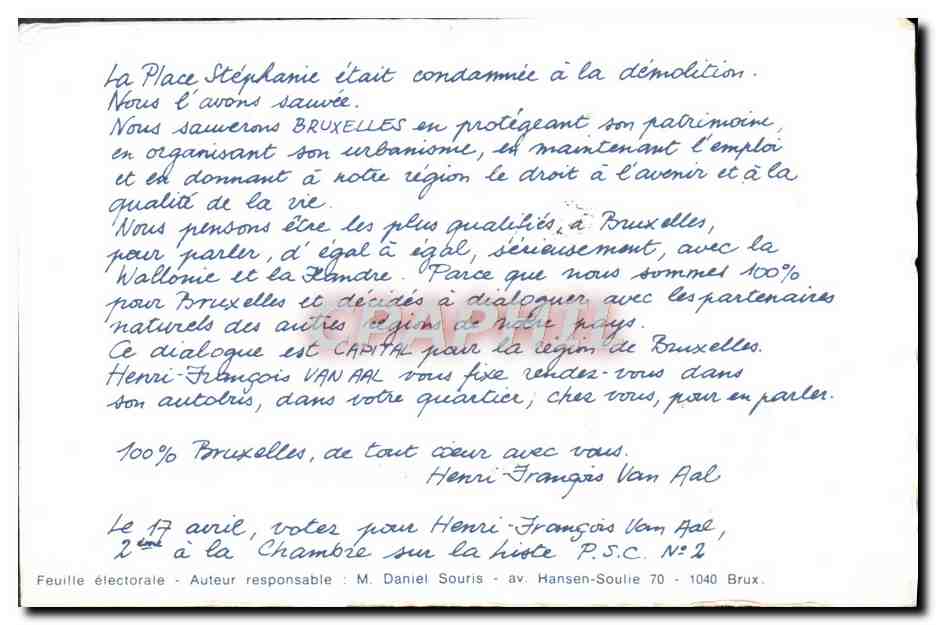 La Place Stéphanie était condamnée à la démolition.
Nous l'avons sauvée.
Nous sauverons BRUXELLES en protégeant son patrimoine,
en organisant son urbanisme, en maintenant l'emploi
et en donnant à notre région le droit à l'avenir et à la
qualité de la vie.
Nous pensons être les plus qualifiés, à Bruxelles,
pour parler, d'égal à égal, sérieusement, avec la
Wallonie et la Flandre. Parce que nous sommes 100%
pour Bruxelles et décidés à dialoguer avec les partenaires
naturels des autres régions de notre pays.
Ce dialogue est CAPITAL pour la région de Bruxelles.
Henri-François VAN AAL vous fixe rendez-vous dans
son autobus, dans votre quartier, chez vous, pour en parler.
100% Bruxelles, de tout cœur avec vous.
Henri-François Van Aal
Le 17 avril, votez pour Henri-François Van Aal,
2ème à la Chambre sur la Liste P.S.C. N°2
Feuille électorale - Auteur responsable : M. Daniel Souris - av. Hansen-Soulie 70 - 1040 Brux.
CPAPHIL